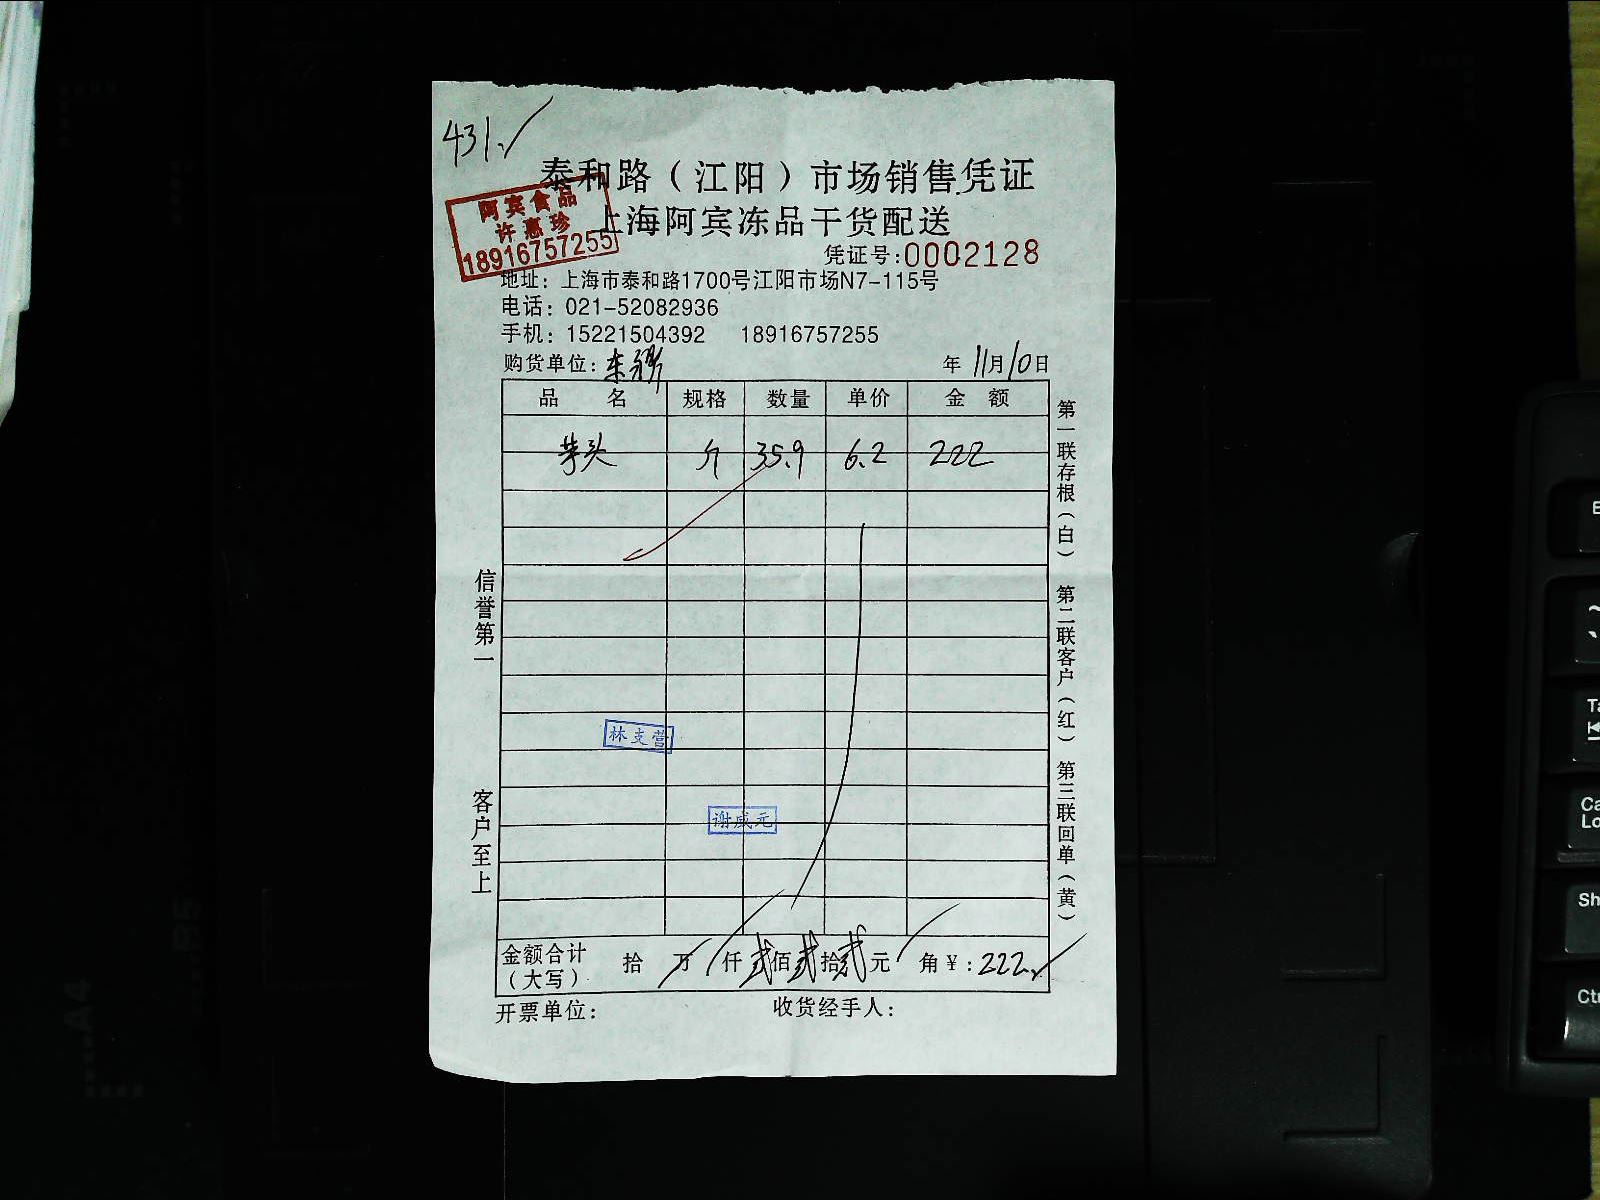 431.
泰和路（江阳）市场销售凭证
阿宾食品
许惠珍
18916757255
上海阿宾冻品干货配送
凭证号:0002128
地址：上海市泰和路1700号江阳市场N7-115号
电话：021-52082936
手机：15221504392 18916757255
购货单位： 年 11月10日
品 名 规格 数量 单价 金 额
芋头 斤 35.9 6.2 222
信誉第一
客户至上
第一联存根（白） 第二联客户（红） 第三联回单（黄）
林支营
谢成元
金额合计（大写） 拾 万 仟 贰佰贰拾贰元 角 ¥：222.
开票单位： 收货经手人：
E
~
Ta
Ca
Lo
Sh
Ctr
A4
B5